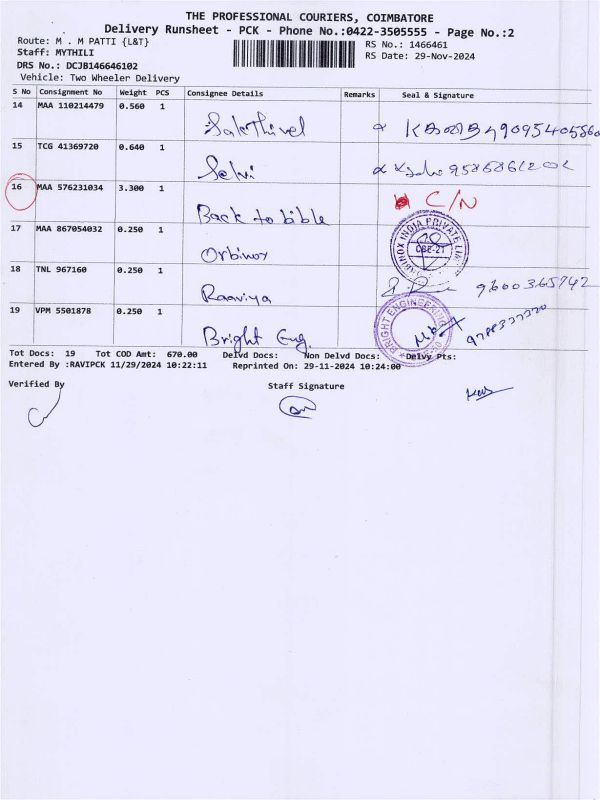 THE PROFESSIONAL COURIERS, COIMBATORE
Delivery Runsheet - PCK - Phone No.:0422-3505555 - Page No.:2
Route: M . M PATTI {L&T} RS No.: 1466461
Staff: MYTHILI RS Date: 29-Nov-2024
DRS No.: DCJB146646102
Vehicle: Two Wheeler Delivery
S No Consignment No Weight PCS Consignee Details Remarks Seal & Signature
14 MAA 110214479 0.560 1 Sakthivel
15 TCG 41369720 0.640 1 Selvi
16 MAA 576231034 3.300 1 Back to bible C/N
17 MAA 867054032 0.250 1 Orbinox INDIA PRIVATE CBE-21
18 TNL 967160 0.250 1 Raaviya 9600365742
19 VPM 5501878 0.250 1 Bright Eng. BRIGHT ENGINEERING
Tot Docs: 19 Tot COD Amt: 670.00 Delvd Docs: Non Delvd Docs: Delvy Pts:
Entered By :RAVIPCK 11/29/2024 10:22:11 Reprinted On: 29-11-2024 10:24:00
Verified By Staff Signature